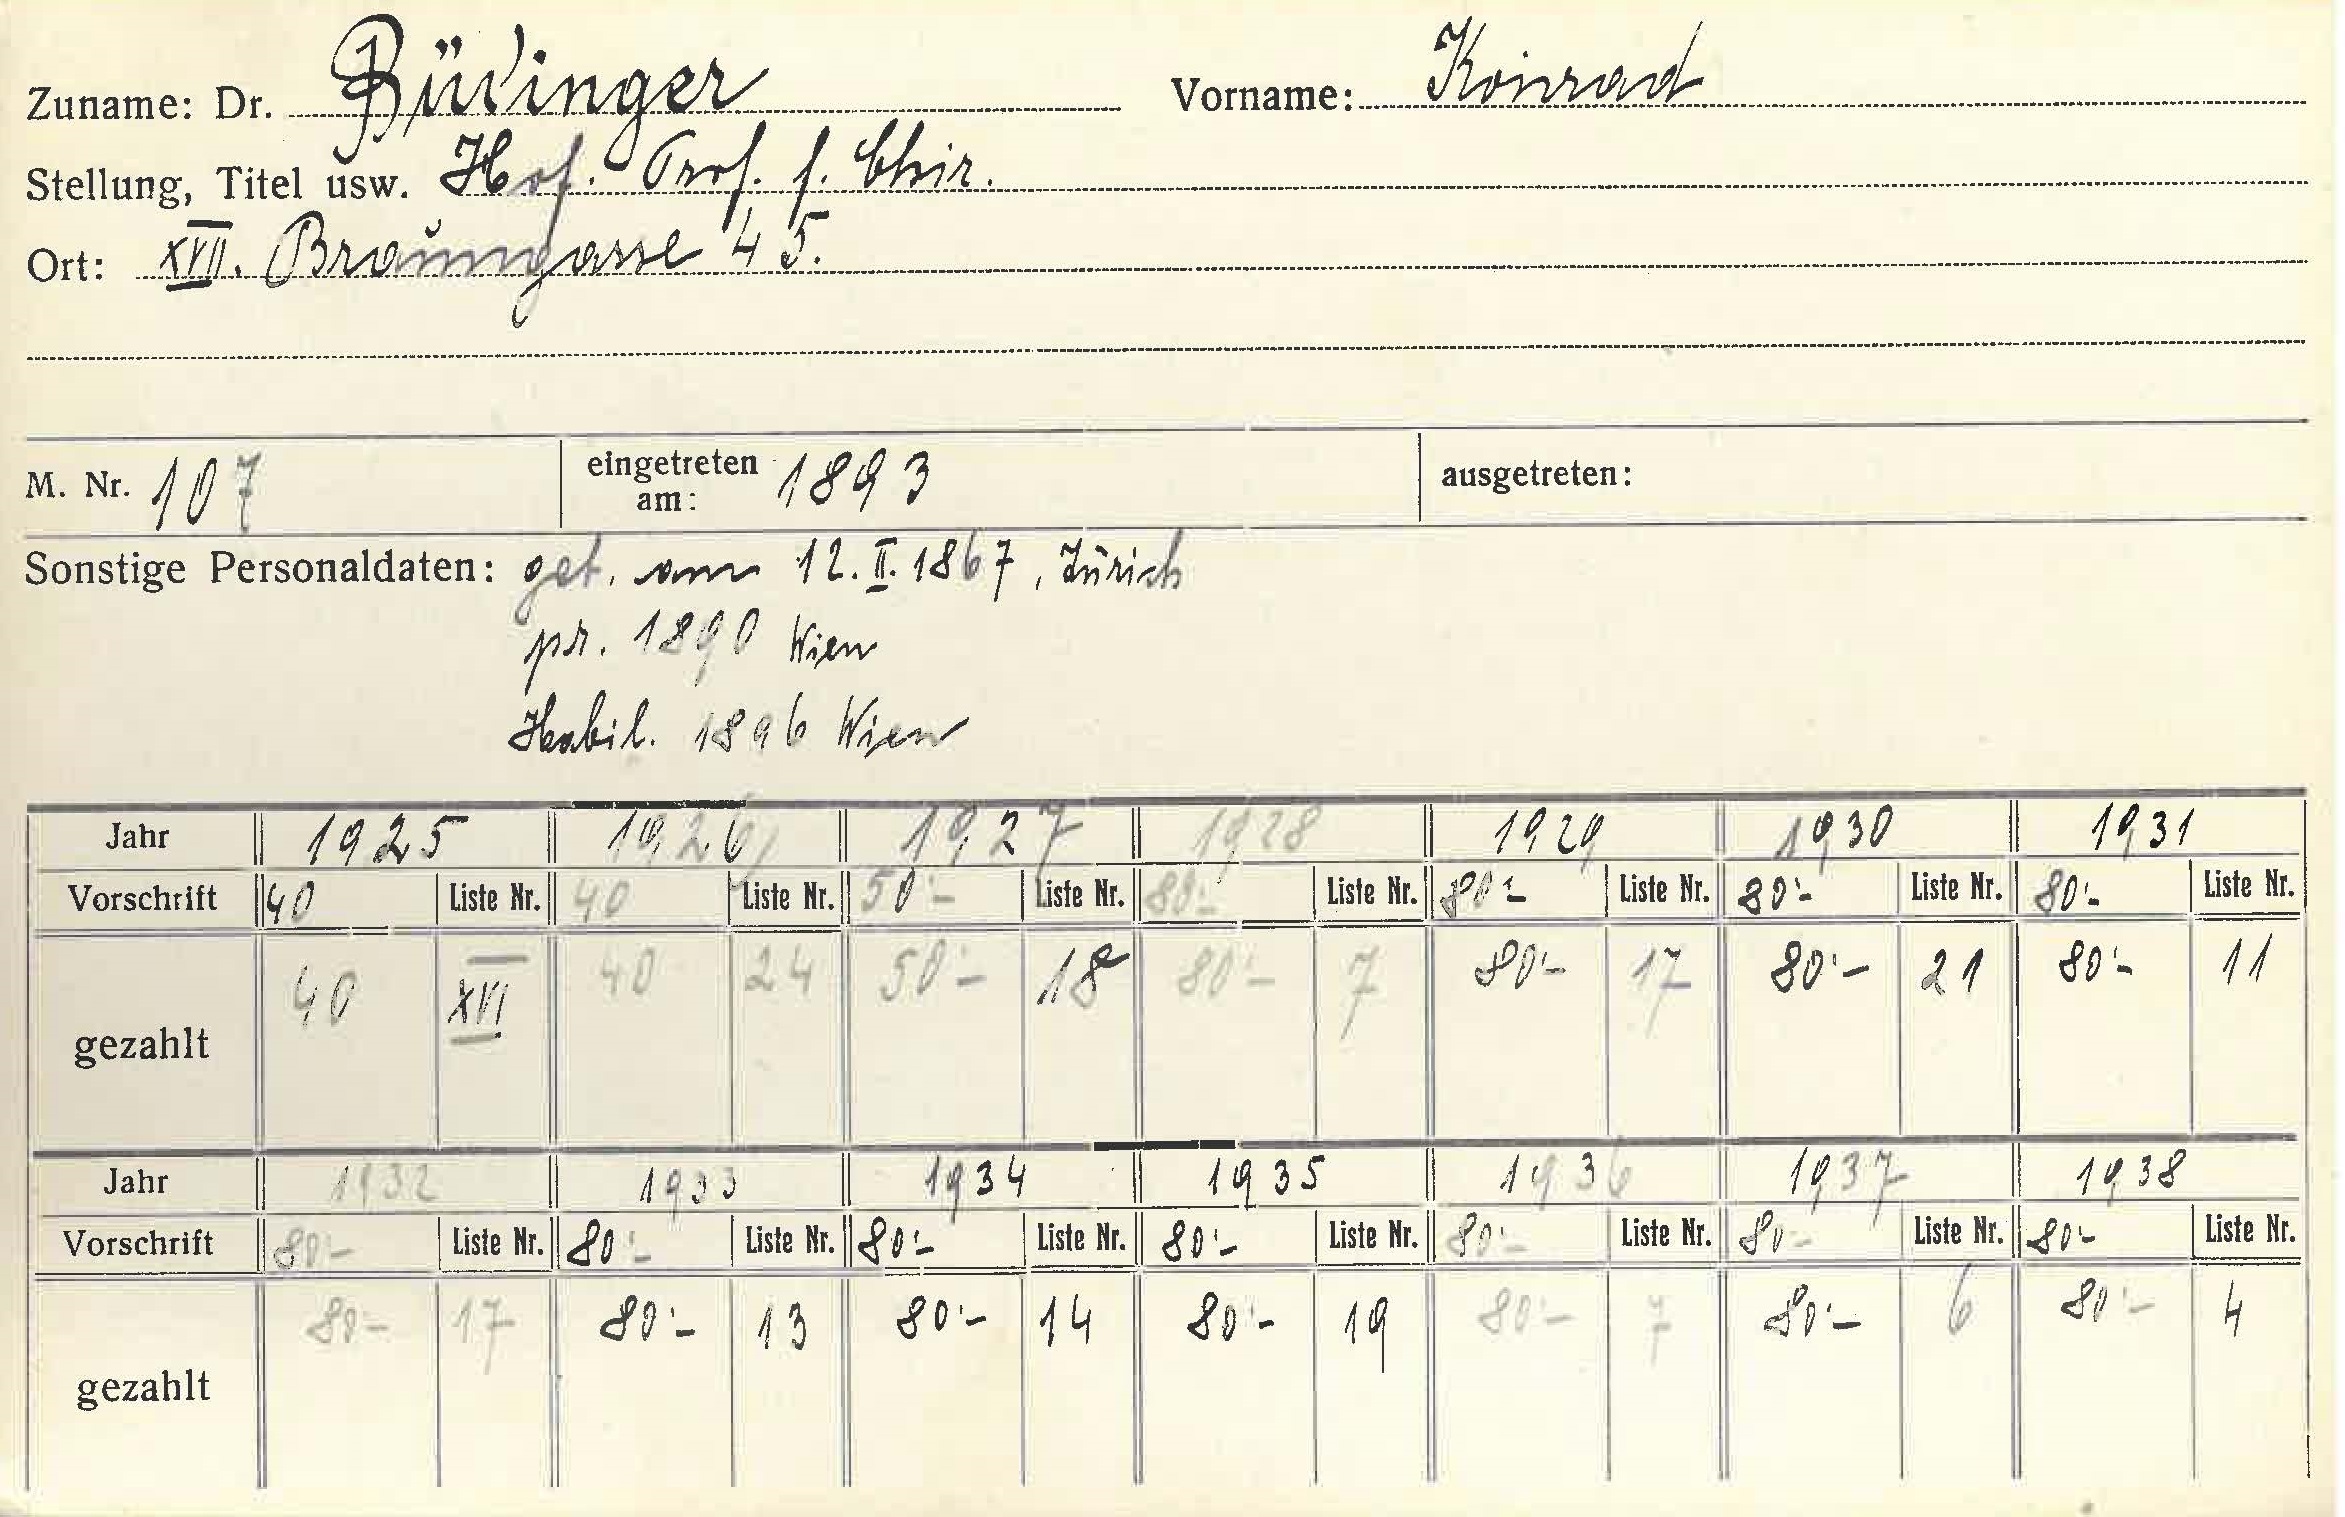 Zuname: Dr. Büdinger Vorname: Konrad
Stellung, Titel usw. Hof. Prof. f. Chir.
Ort: XVII. Braungasse 45.
M. Nr. 107 eingetreten am: 1893 ausgetreten:
Sonstige Personaldaten: geb. am 12. II. 1867, Zürich
pr. 1890 Wien
Habil. 1896 Wien
Jahr 1925 1926 1927 1928 1929 1930 1931
Vorschrift 40 Liste Nr. 40 Liste Nr. 50'- Liste Nr. 80'- Liste Nr. 80'- Liste Nr. 80'- Liste Nr. 80'- Liste Nr.
gezahlt 40 XVI 40 24 50'- 18 80'- 7 80'- 17 80'- 21 80'- 11
Jahr 1932 1933 1934 1935 1936 1937 1938
Vorschrift 80'- Liste Nr. 80'- Liste Nr. 80'- Liste Nr. 80'- Liste Nr. 80'- Liste Nr. 80'- Liste Nr. 80'- Liste Nr.
gezahlt 80'- 17 80'- 13 80'- 14 80'- 19 80'- 7 80'- 6 80'- 4